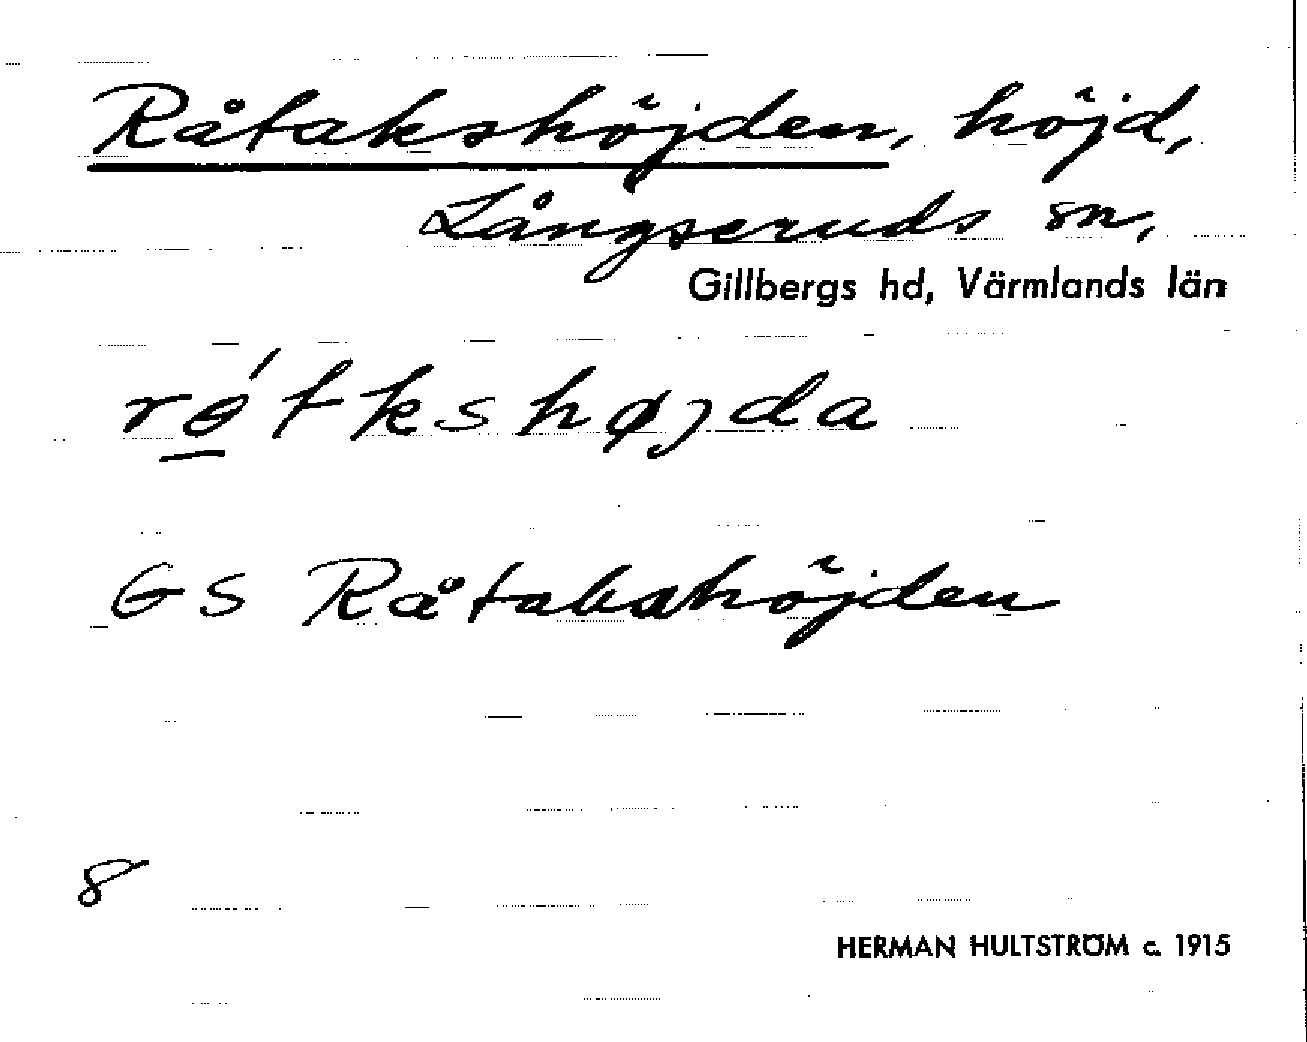 Råtakshöjden, höjd,
Långseruds sn,
Gillbergs hd, Värmlands län
rɵ́tkshøjda
GS Råtakahöjden
8
HERMAN HULTSTRÖM c. 1915